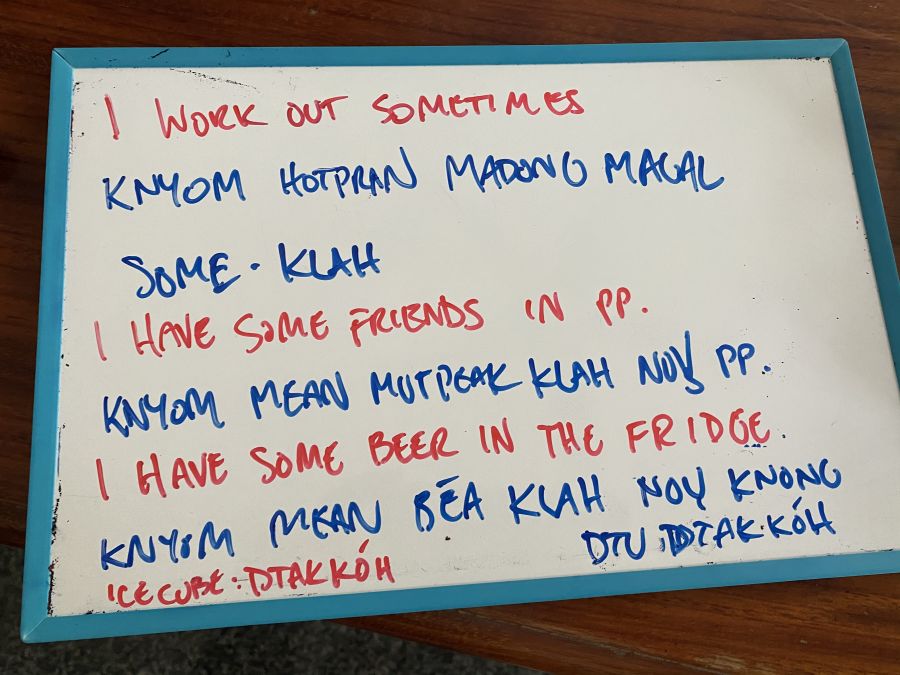 I WORK OUT SOMETIMES
KNYOM HOTPRAN MADONG MAGAL
SOME . KLAH
I HAVE SOME FRIENDS IN PP.
KNYOM MEAN MUTPEAK KLAH NOV PP.
I HAVE SOME BEER IN THE FRIDGE.
KNYOM MEAN BĒA KLAH NOV KNONG
DTU DTAK KÓH
ICE CUBE . DTAK KÓH